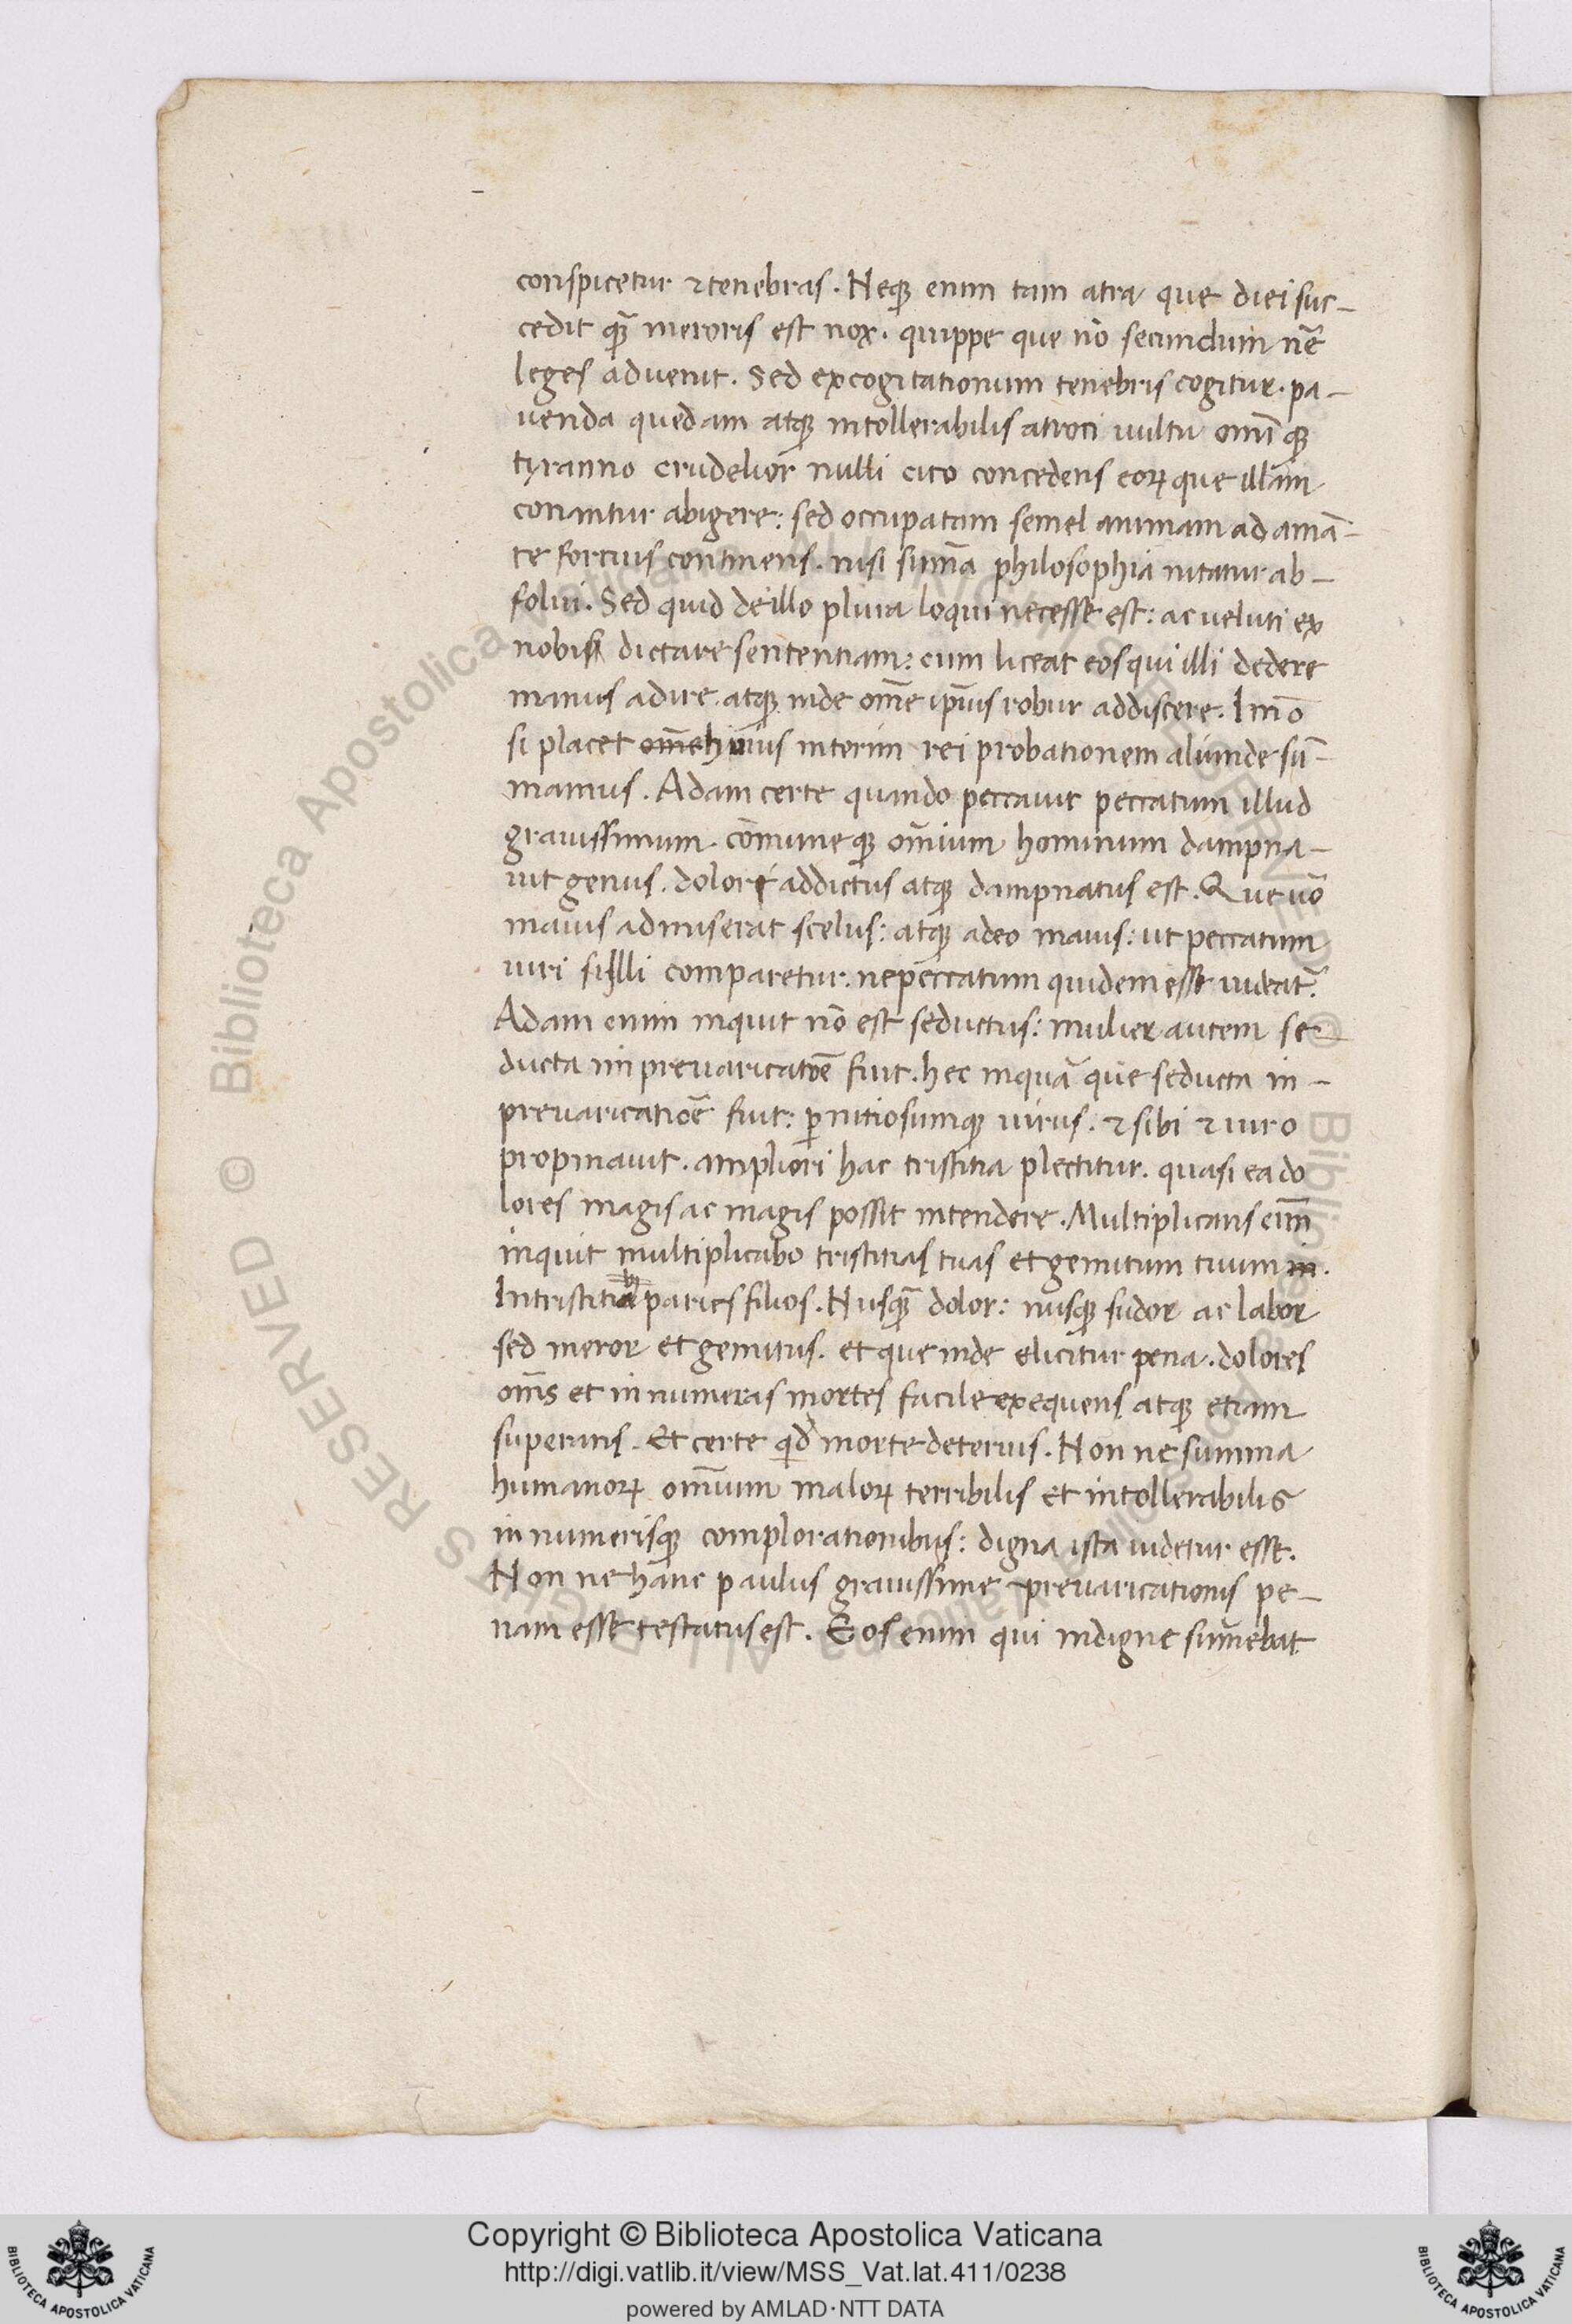 conspicetur ⁊ tenebras. Neqꝫ enim tam atra que diei suc-
cedit qꝫ̄ meroris est nox. quippe que nō secundum nr̄e
leges aduenit. Sed ex cogitationum tenebris cogitur. pa-
uenda quedam atqꝫ intollerabilis atroci uultu omīqꝫ
tyranno crudelior nulli cito concedens eoꝝ que illam
conantur abigere: sed occupatam semel animam adamā-
te fortius continens. nisi sum̄a philosophia nitatur ab-
solui. Sed quid de illo plura loqui necesse est: ac ueluti ex
nobis dictare sententiam: cum liceat eos qui illi dedere
manus adire. atqꝫ inde om̄e ip̄ius robur addiscere. Im̄o
si placet om̄eh uius interim rei probationem aliunde sū-
mamus. Adam certe quando peccauit peccatum illud
grauissimum. cōmuneqꝫ om̄ium hominum dampna-
uit genus. dolori addictus atqꝫ dampnatus est. Que uō
maius admiserat scelus: atqꝫ adeo maius: ut peccatum
uiri si illi comparetur. ne peccatum quidem esse uideat̄.
Adam enim inquit nō est seductus: mulier autem se-
ducta in preuaricatōe fuit. hec inquā que seducta in-
preuaricatiōe fuit: ꝑnitiosumqꝫ uirus. ⁊ sibi ⁊ uiro
propinauit. ampliori hac tristitia plectitur. quasi ea do
lores magis ac magis possit intendere. Multiplicans eim̄
inquit multiplicabo tristitias tuas et gemitum tuum in.
In tristitia paries filios. Nusqꝫ̄ dolor: nusqꝫ sudor ac labor
sed meror et gemitus. et que inde elicitur pena. dolores
om̄s et innumeras mortes facile exequens atqꝫ etiam
superans. Et certe qid morte deterius. Non ne summa
humanoꝝ om̄ium maloꝝ terribilis et intollerabilis
innumerisqꝫ complorationibus: digna ista uidetur esse.
Non ne hanc paulus grauissime preuaricationis pe-
nam esse testatus est. Eos enim qui indigne sumebāt
Copyright © Biblioteca Apostolica Vaticana
http://digi.vatlib.it/view/MSS_Vat.lat.411/0238
powered by AMLAD·NTT DATA